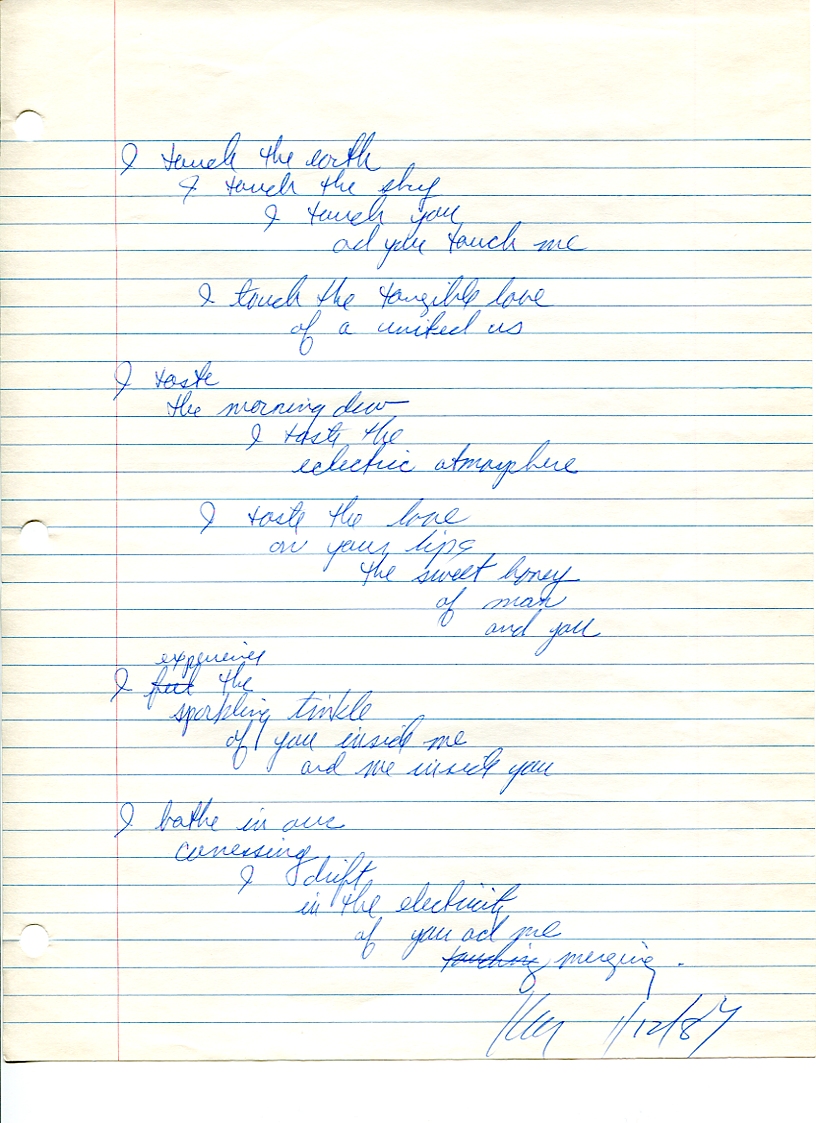 I touch the earth
I touch the sky
I touch you
ad you touch me
I touch the tangible love
of a united us
I taste
the morning dew
I taste the
eclectric atmosphere
I taste the love
on your lips
the sweet honey
of man
and you
experience
I feel the
sparkling tinkle
of you inside me
and me inside you
I bathe in our
caressing
I drift
in the electricity
of you ad me
touching merging.
1/12/87